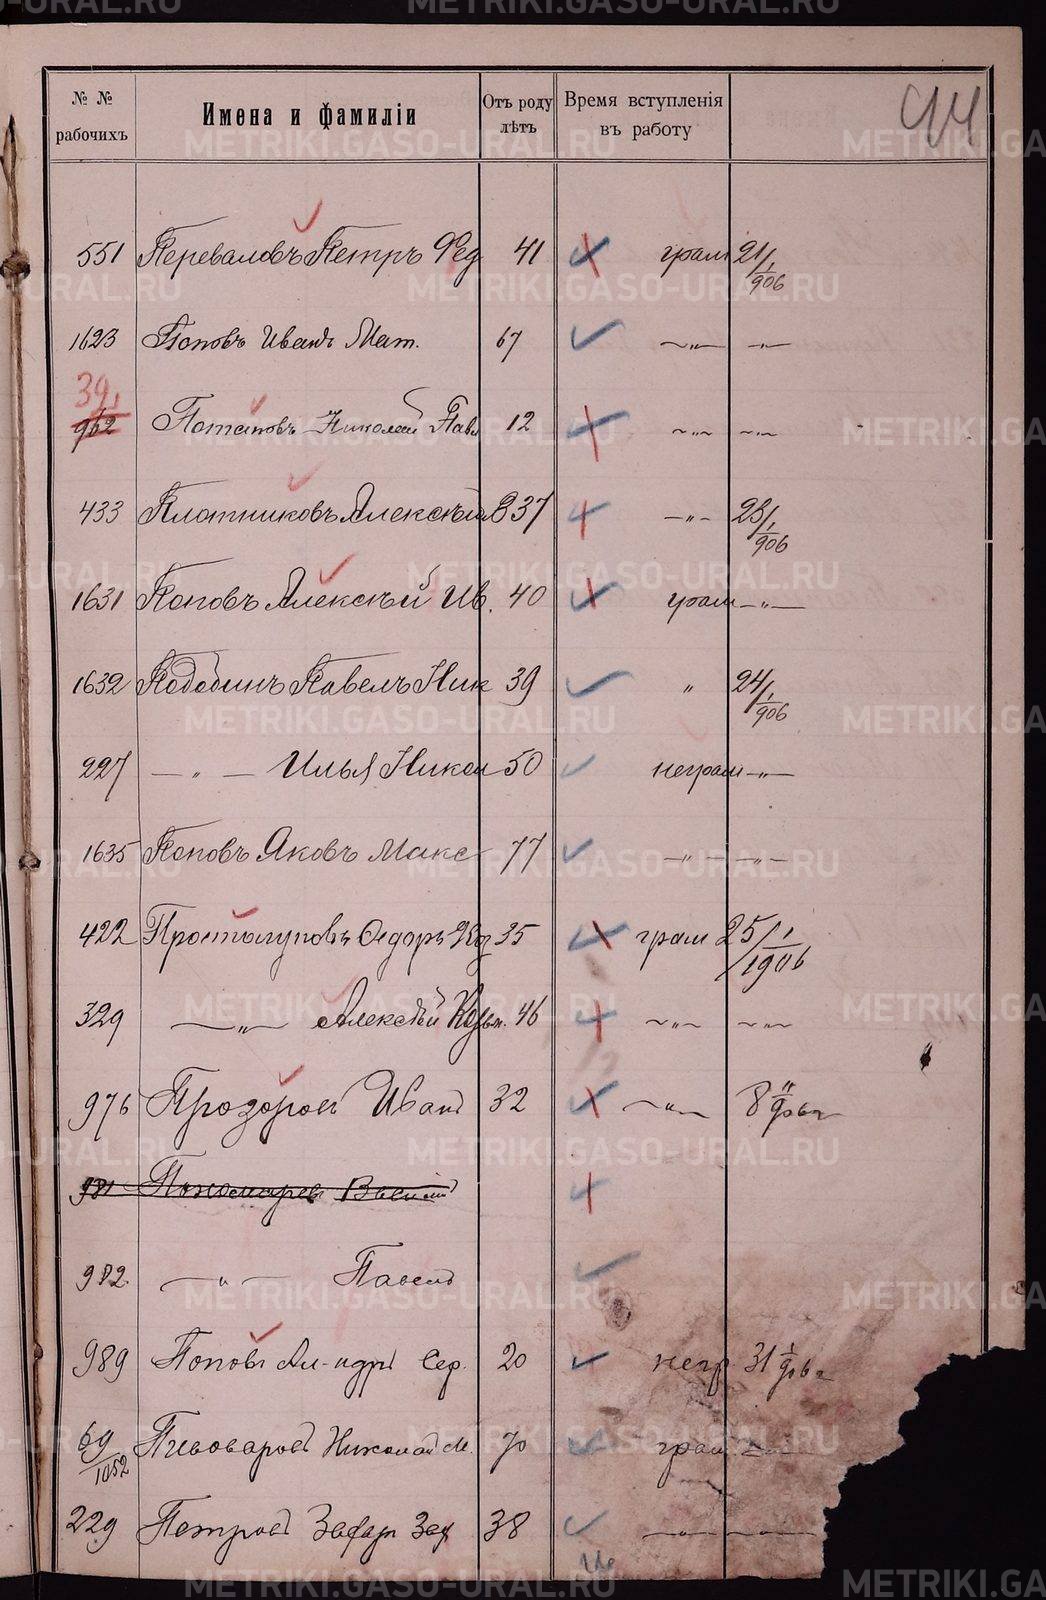 94
№ № рабочихъ Имена и фамиліи Отъ роду лѣтъ Время вступленія въ работу
551 Переваловъ Петръ Фед 41 грам 21/1 906
1623 Поповъ Иванъ Мат. 67 —„— —„—
391
962 Потаповъ Николай Павл 12 —„— —„—
433 Плотниковъ Алексѣй 37 —„— 23/1 906
1631 Поповъ Алексѣй Ив. 40 грам —„—
1632 Павелъ Ник 39 „ 24/1 906
227 —„— Илья Никол 50 неграм —„—
1635 Поповъ Яковъ Макс 77 —„— —„—
422 Простолуповъ Ѳедоръ 35 грам 25/1 1906
329 —„— Алексѣй Козьм. 46 —„— —„—
976 Прозоровъ Иванъ 32 —„— 8
981 Пономаревъ
982. —„— Павелъ
989 Поповъ Ал-ндръ Сер. 20 негр 31
69/1052 Пивоваровъ Николай М. 70 грам —„—
229 Петровъ Захаръ Зах 38 —„— —„—
METRIKI.GASO-URAL.RU